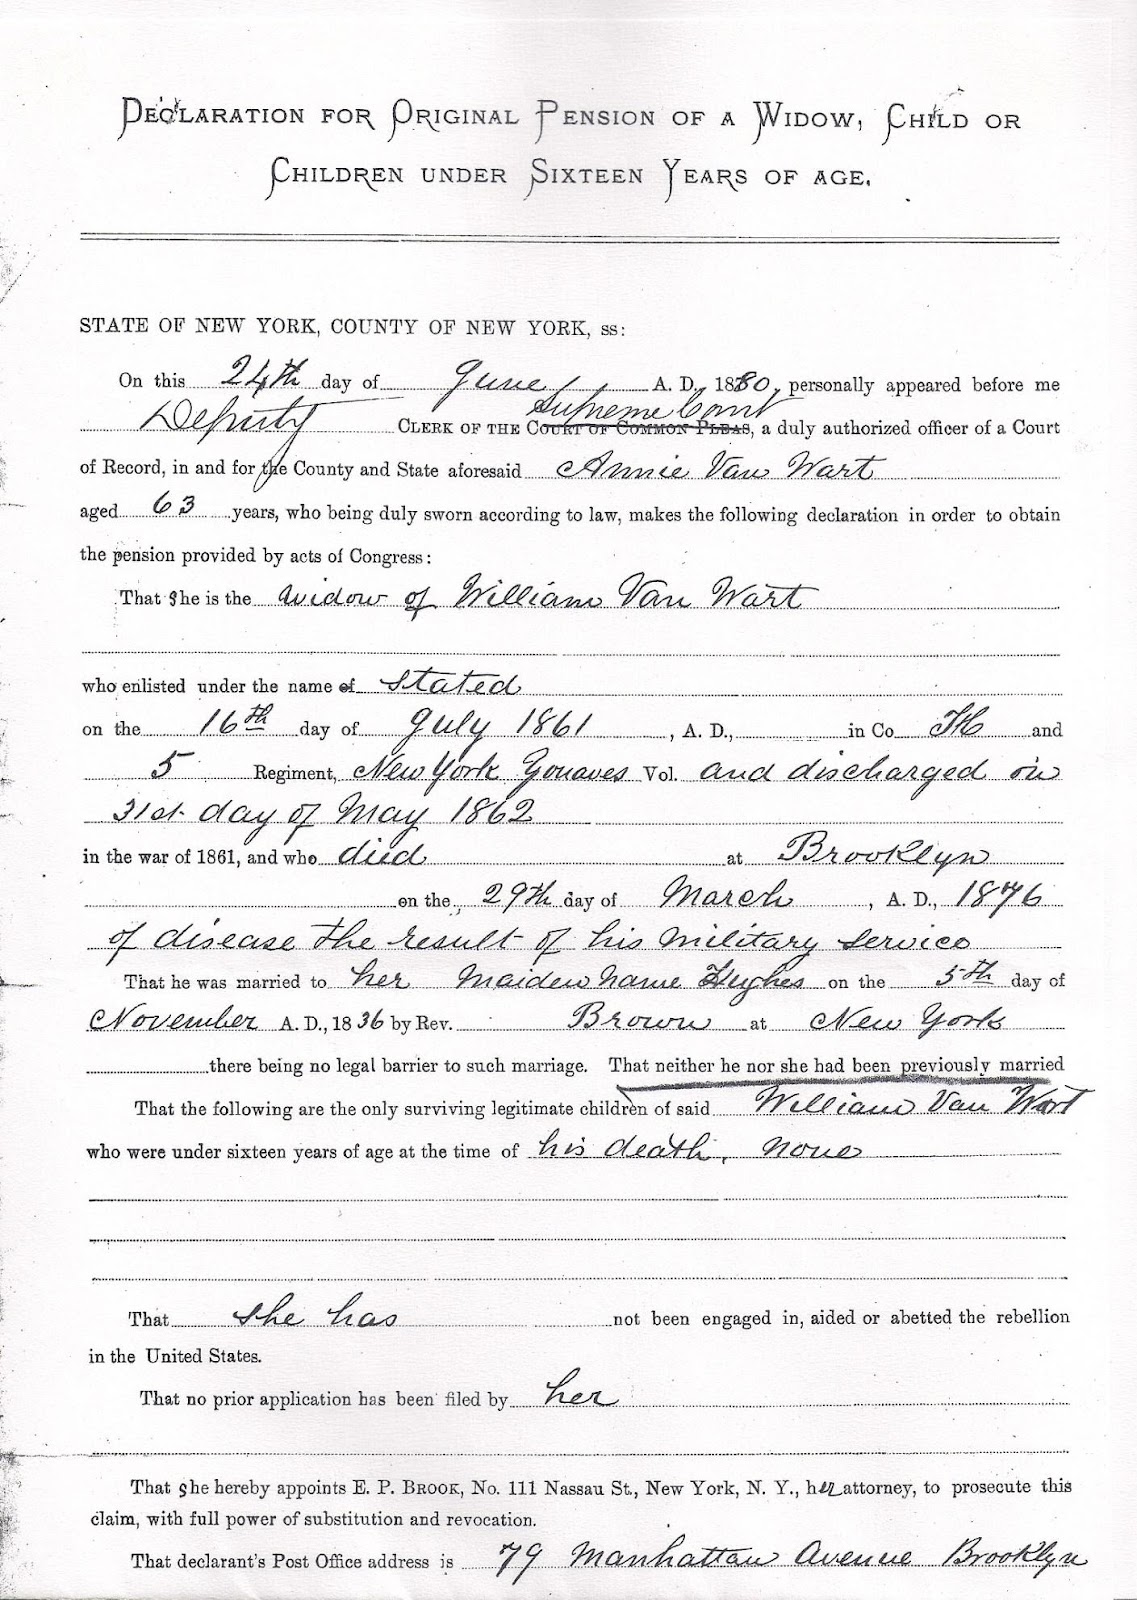 DECLARATION FOR ORIGINAL PENSION OF A WIDOW, CHILD OR
CHILDREN UNDER SIXTEEN YEARS OF AGE.
STATE OF NEW YORK, COUNTY OF NEW YORK, ss:
On this 24th day of June, A. D. 1880, personally appeared before me
Supreme Court
Deputy CLERK OF THE COURT OF COMMON PLEAS, a duly authorized officer of a Court
of Record, in and for the County and State aforesaid Annie Van Wart
aged 63 years, who being duly sworn according to law, makes the following declaration in order to obtain
the pension provided by acts of Congress:
That she is the widow of William Van Wart
who enlisted under the name of stated
on the 16th day of July 1861, A. D., in Co H and
5 Regiment, New York Zouaves Vol. and discharged on
31st day of May 1862
in the war of 1861, and who died at Brooklyn
on the 29th day of March, A. D., 1876
of disease the result of his military service
That he was married to her maiden name Hughes on the 5th day of
November A. D., 1836 by Rev. Brown at New York
there being no legal barrier to such marriage. That neither he nor she had been previously married
That the following are the only surviving legitimate children of said William Van Wart
who were under sixteen years of age at the time of his death, none
That she has not been engaged in, aided or abetted the rebellion
in the United States.
That no prior application has been filed by her
That she hereby appoints E. P. BROOK, No. 111 Nassau St., New York, N. Y., her attorney, to prosecute this
claim, with full power of substitution and revocation.
That declarant's Post Office address is 79 Manhattan Avenue Brooklyn